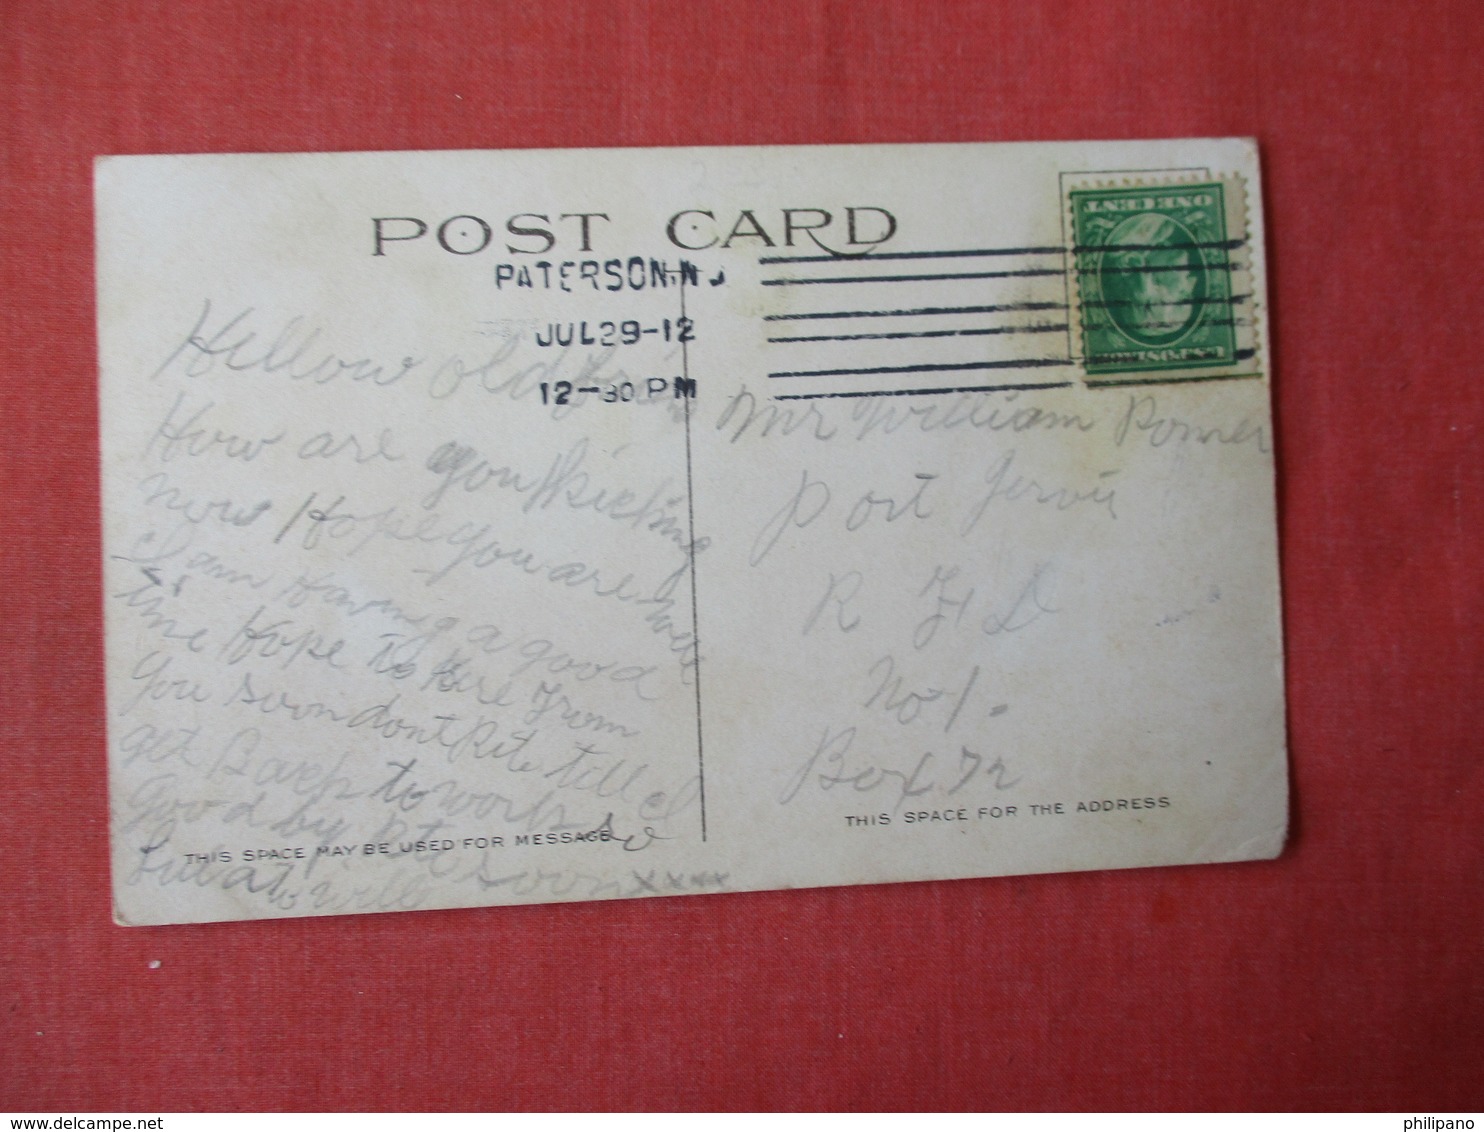 POST CARD
PATERSON, N J
JUL 29-12
12-30 PM
ONE CENT
U.S. POSTAGE
Hellow old
How are you Kicking
now Hope you are well
I am Having a good
time Hope to Here From
you soon dont Rite till I
get Back to work so
Good by Rite soon xxxx
Will
THIS SPACE MAY BE USED FOR MESSAGE
Mr William Pomer
Port Jervis
R F D
No 1.
Box 72
THIS SPACE FOR THE ADDRESS
philipano